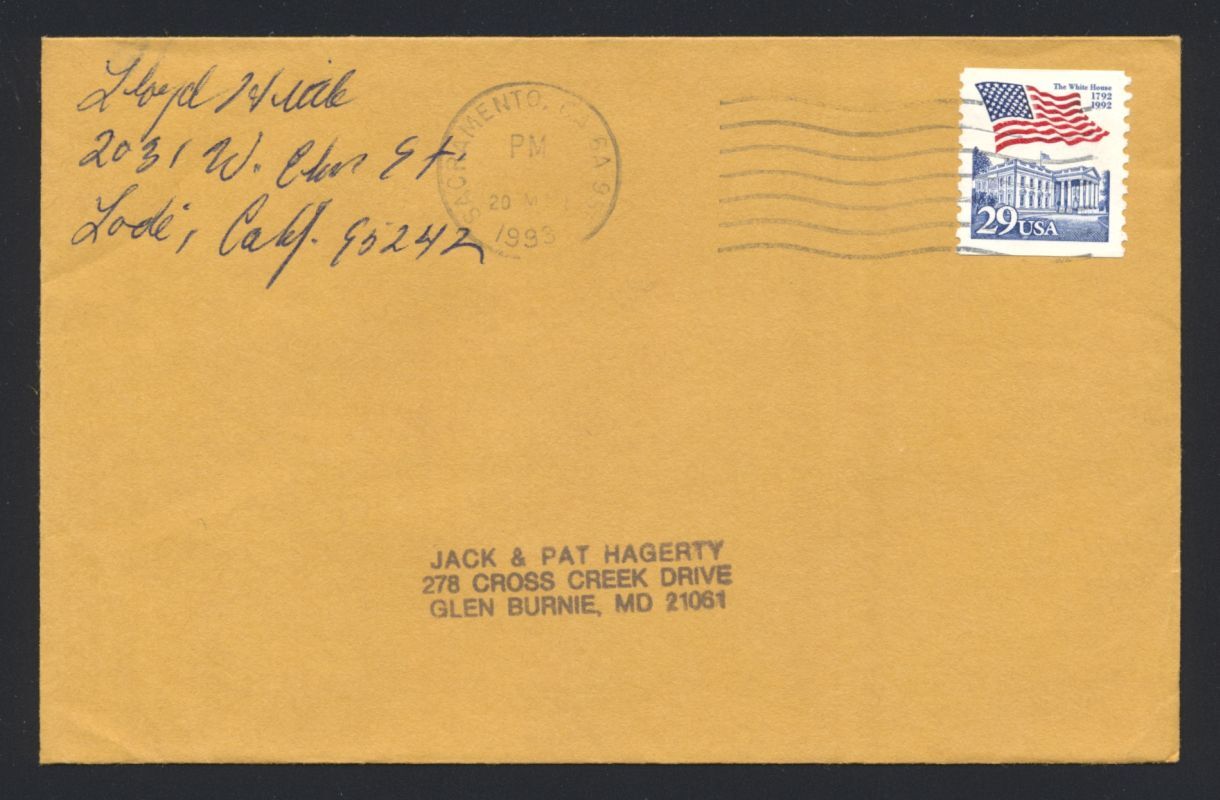 Lloyd
2031 W. Elm St
Lodi, Calif. 95242
SACRAMENTO, CA
PM
20 M
1993
The White House
1792
1992
29 USA
JACK & PAT HAGERTY
278 CROSS CREEK DRIVE
GLEN BURNIE, MD 21061